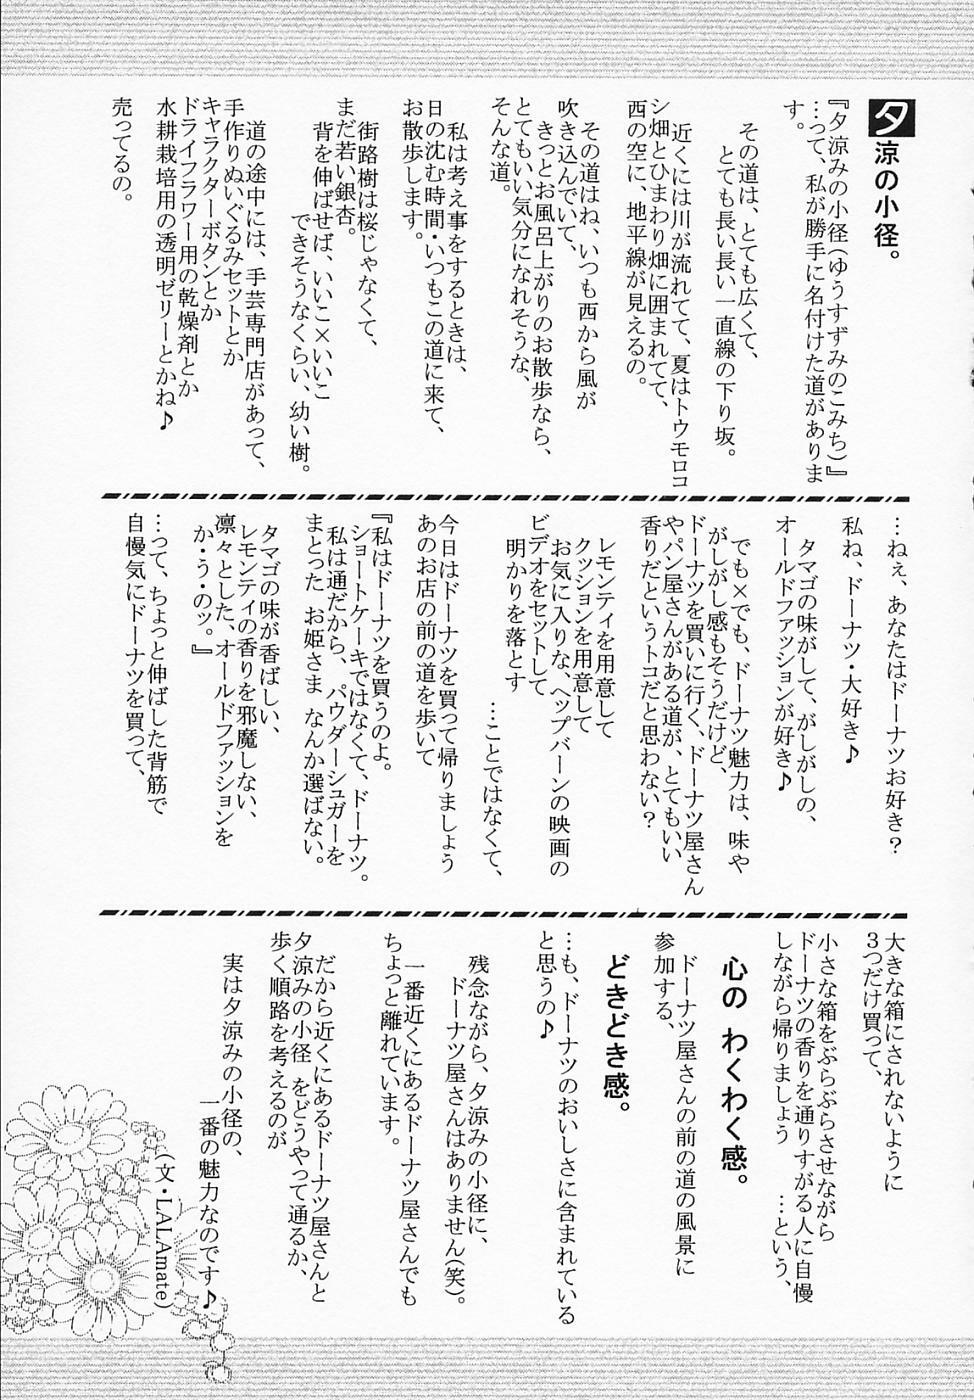 夕涼の小径。
『夕涼みの小径(ゆうすずみのこみち)』
…って、私が勝手に名付けた道がありま
す。
その道は、とても広くて、
とても長い長い一直線の下り坂。
近くには川が流れてて、夏はトウモロコ
シ畑とひまわり畑に囲まれてて、
西の空に、地平線が見えるの。
その道はね、いつも西から風が
吹き込んでいて、
きっとお風呂上がりのお散歩なら、
とてもいい気分になれそうな、
そんな道。
私は考え事をするときは、
日の沈む時間・いつもこの道に来て、
お散歩します。
街路樹は桜じゃなくて、
まだ若い銀杏。
背を伸ばせば、いいこ×いいこ
できそうなくらい、幼い樹。
道の途中には、手芸専門店があって、
手作りぬいぐるみセットとか
キャラクターボタンとか
ドライフラワー用の乾燥剤とか
水耕栽培用の透明ゼリーとかね♪
売ってるの。
…ねぇ、あなたはドーナツお好き?
私ね、ドーナツ・大好き♪
タマゴの味がして、がしがしの、
オールドファッションが好き♪
でも×でも、ドーナツ魅力は、味や
がしがし感もそうだけど、
ドーナツを買いに行く、ドーナツ屋さん
やパン屋さんがある道が、とてもいい
香りだというトコだと思わない?
レモンティを用意して
クッションを用意して
お気に入りな、ヘップバーンの映画の
ビデオをセットして
明かりを落とす
…ことではなくて、
今日はドーナツを買って帰りましょう
あのお店の前の道を歩いて
『私はドーナツを買うのよ。
ショートケーキではなくて、ドーナツ。
私は通だから、パウダーシュガーを
まとった お姫さま なんか選ばない。
タマゴの味が香ばしい、
レモンティの香りを邪魔しない、
凛々とした、オールドファッションを
か・う・のッ。』
…って、ちょっと伸ばした背筋で
自慢気にドーナツを買って、
大きな箱にされないように
3つだけ買って、
小さな箱をぶらぶらさせながら
ドーナツの香りを通りすがる人に自慢
しながら帰りましょう …という、
心の わくわく感。
ドーナツ屋さんの前の道の風景に
参加する、
どきどき感。
…も、ドーナツのおいしさに含まれている
と思うの♪
残念ながら、夕涼みの小径に、
ドーナツ屋さんはありません(笑)。
一番近くにあるドーナツ屋さんでも
ちょっと離れています。
だから近くにあるドーナツ屋さんと
夕涼みの小径 をどうやって通るか、
歩く順路を考えるのが
実は夕涼みの小径の、
一番の魅力なのです♪
(文・LALAmate)